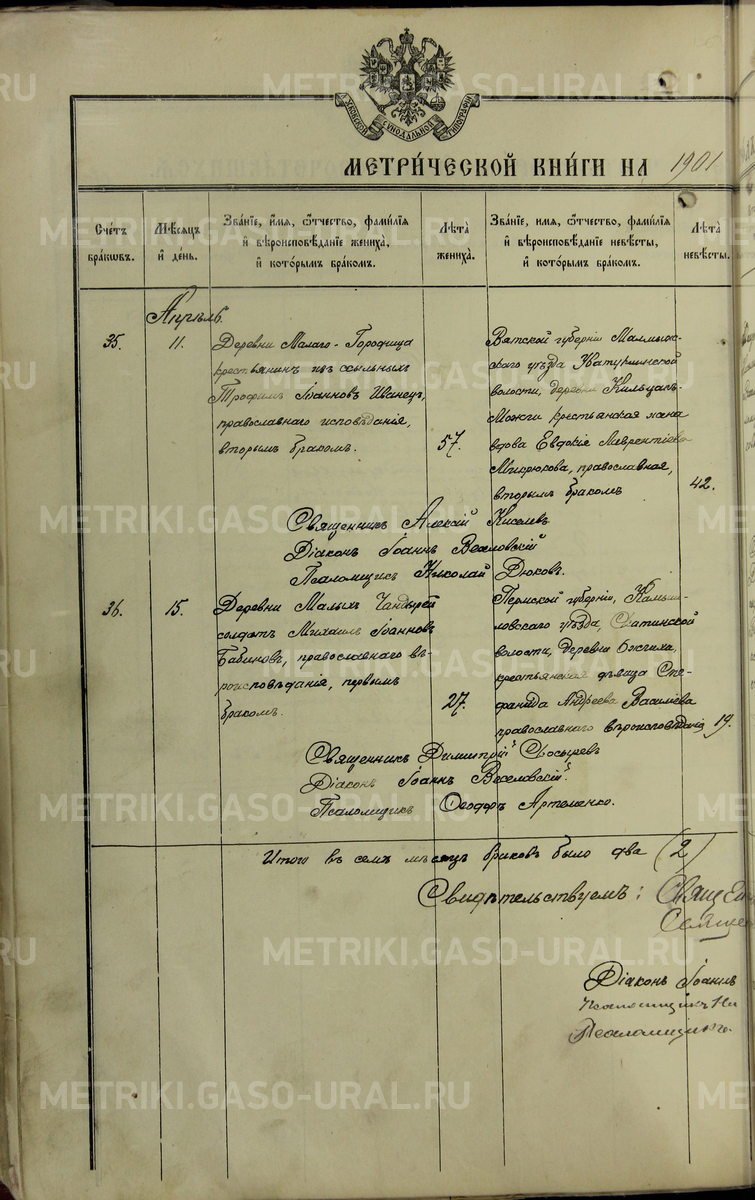 МОСКОВСКОЙ СУНОДАЛЬНОЙ ТИПОГРАФІИ
МЕТРИ́ЧЕСКОЙ КНИ́ГИ НА 1901
Сче́тъ бра́кѡвъ.
Мѣ́сяцъ и́ де́нь.
Зва́нїе, и́мя, ѻ́тчество, фами́лїя и́ вѣроисповѣ́данїе жениха̀, и́ кото́рымъ бра́комъ.
Лѣта̀ жениха̀.
Зва́нїе, имя, ѻ́тчество, фами́лїя и́ вѣроисповѣ́данїе невѣ́сты, и́ кото́рымъ бра́комъ.
Лѣта̀ невѣ́сты.
Апрѣль
35.
11.
Деревни Малаго-Городища
крестьянинъ изъ ссыльныхъ
Трофимъ Іоанновъ Иванецъ,
православнаго исповѣданія,
вторымъ бракомъ.
57.
Вятской губерніи Малмыж-
скаго уѣзда
волости, деревни
Можги крестьянская жена
вдова Евдокія Лаврентіева
Микрюкова, православная,
вторымъ бракомъ
42.
Священникъ Алексій Киселевъ
Діаконъ Іоаннъ Веселовскій
Псаломщикъ Николай Дюковъ.
36.
15.
Деревни Малыхъ Чандырей
солдатъ Михаилъ Іоанновъ
Бабиновъ, православнаго вѣ-
роисповѣданія, первымъ
бракомъ.
27.
Пермской губерніи, Камыш-
ловскаго уѣзда,
волости, деревни
крестьянская дѣвица Сте-
фанида Андреева Василіева
православнаго вѣроисповѣданія
19.
Священникъ Димитрій Сосыревъ
Діаконъ Іоаннъ Веселовскій.
Псаломщикъ Ѳеодоръ Артеменко.
Итого въ семъ мѣсяцѣ браковъ было два (2)
Свидѣтельствуемъ: Священ
Священ
Діаконъ Іоаннъ
Псаломщикъ Ни
Псаломщикъ
METRIKI.GASO-URAL.RU